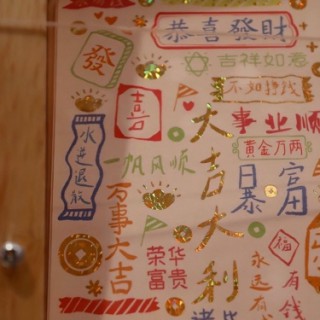 恭喜發財
發
吉祥如意
不如掙錢
喜
事业顺
大吉大利
黄金万两
水逆退散
一帆风顺
日暴富
万事大吉
荣华
富贵
福
永远有
有钱